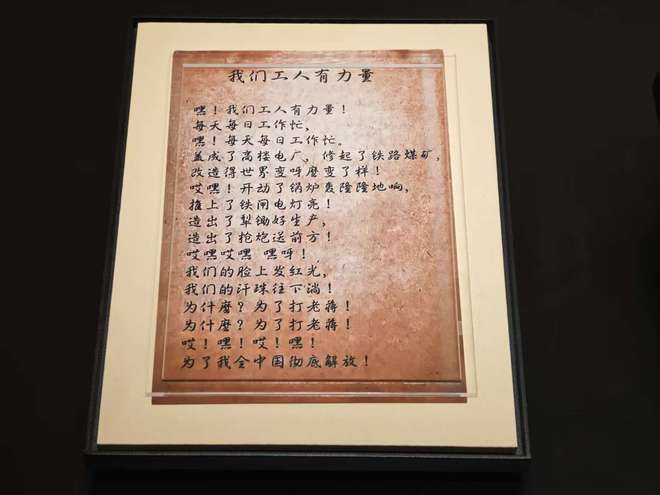 我们工人有力量
嘿！我们工人有力量！
每天每日工作忙，
嘿！每天每日工作忙。
盖成了高楼电厂，修起了铁路煤矿，
改造得世界变呀麼变了样！
哎嘿！开动了锅炉轰隆隆地响，
推上了铁闸电灯亮！
造出了犁锄好生产，
造出了抢炮送前方！
哎嘿哎嘿 嘿呀！
我们的脸上发红光，
我们的汗珠往下淌！
为什麼？为了打老蒋！
为什麼？为了打老蒋！
哎！嘿！哎！嘿！
为了我全中国彻底解放！